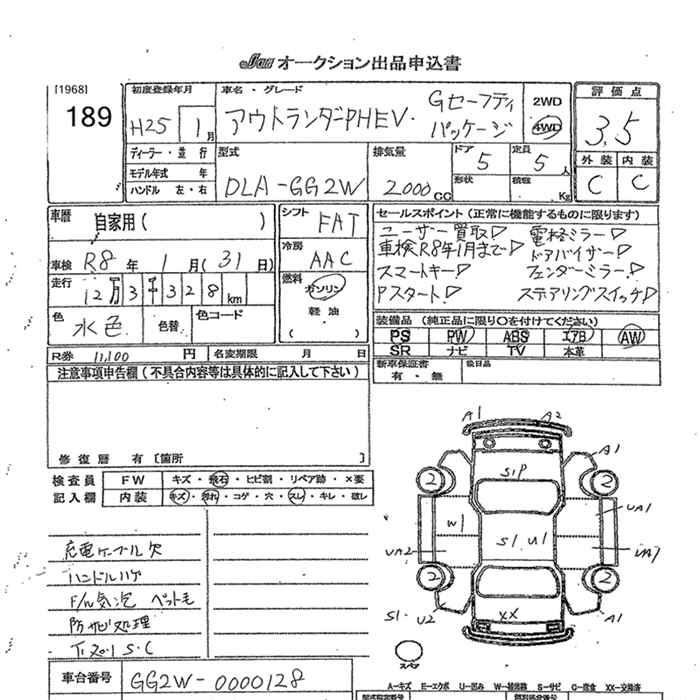 JAA オークション出品申込書
[1968]
189
初度登録年月
H25 1月
車名・グレード
アウトランダーPHEV・ Gセーフティ
パッケージ
2WD
4WD
評価点
3.5
ディーラー・並行
モデル年式 年
ハンドル 左・右
型式
DLA-GG2W
排気量
2000 CC
ドア
5
定員
5 人
形状
積載
Kg
外装 内装
C C
車歴
自家用( )
車検 R8 年 1 月(31 日)
走行
12万3千328 km
色
水色
色替
色コード
シフト
FAT
冷房
AAC
燃料
ガソリン
軽油
( )
セールスポイント(正常に機能するものに限ります)
ユーザー買取
電格ミラー
車検R8年1月まで
ドアバイザー
スマートキー
フェンダーミラー
Pスタート
ステアリングスイッチ
装備品(純正品に限り○を付けてください)
PS PW ABS エアB AW
SR ナビ TV 本革
R券 11,100 円
名変期限 月 日
新車保証書
有・無
注意事項申告欄(不具合内容等は具体的に記入して下さい)
修復歴 有[箇所 ]
検査員
記入欄
FW キズ・飛石・ヒビ割・リペア跡・×要
内装 キズ・汚れ・コゲ・穴・スレ・キレ・破レ
充電ケーブル欠
ハンドルハゲ
F/ハ気泡 ペット毛
防サビ処理
S.C
車台番号 GG2W-0000128
A1 A2
A1
S1P
2 2
W1
UA1
S1 U1
UA2
UA7
2 2
S1.
U2
XX
A1
スペア
A-キズ E-エクボ U-凹み W-補修跡 S-サビ C-腐食 XX-交換済